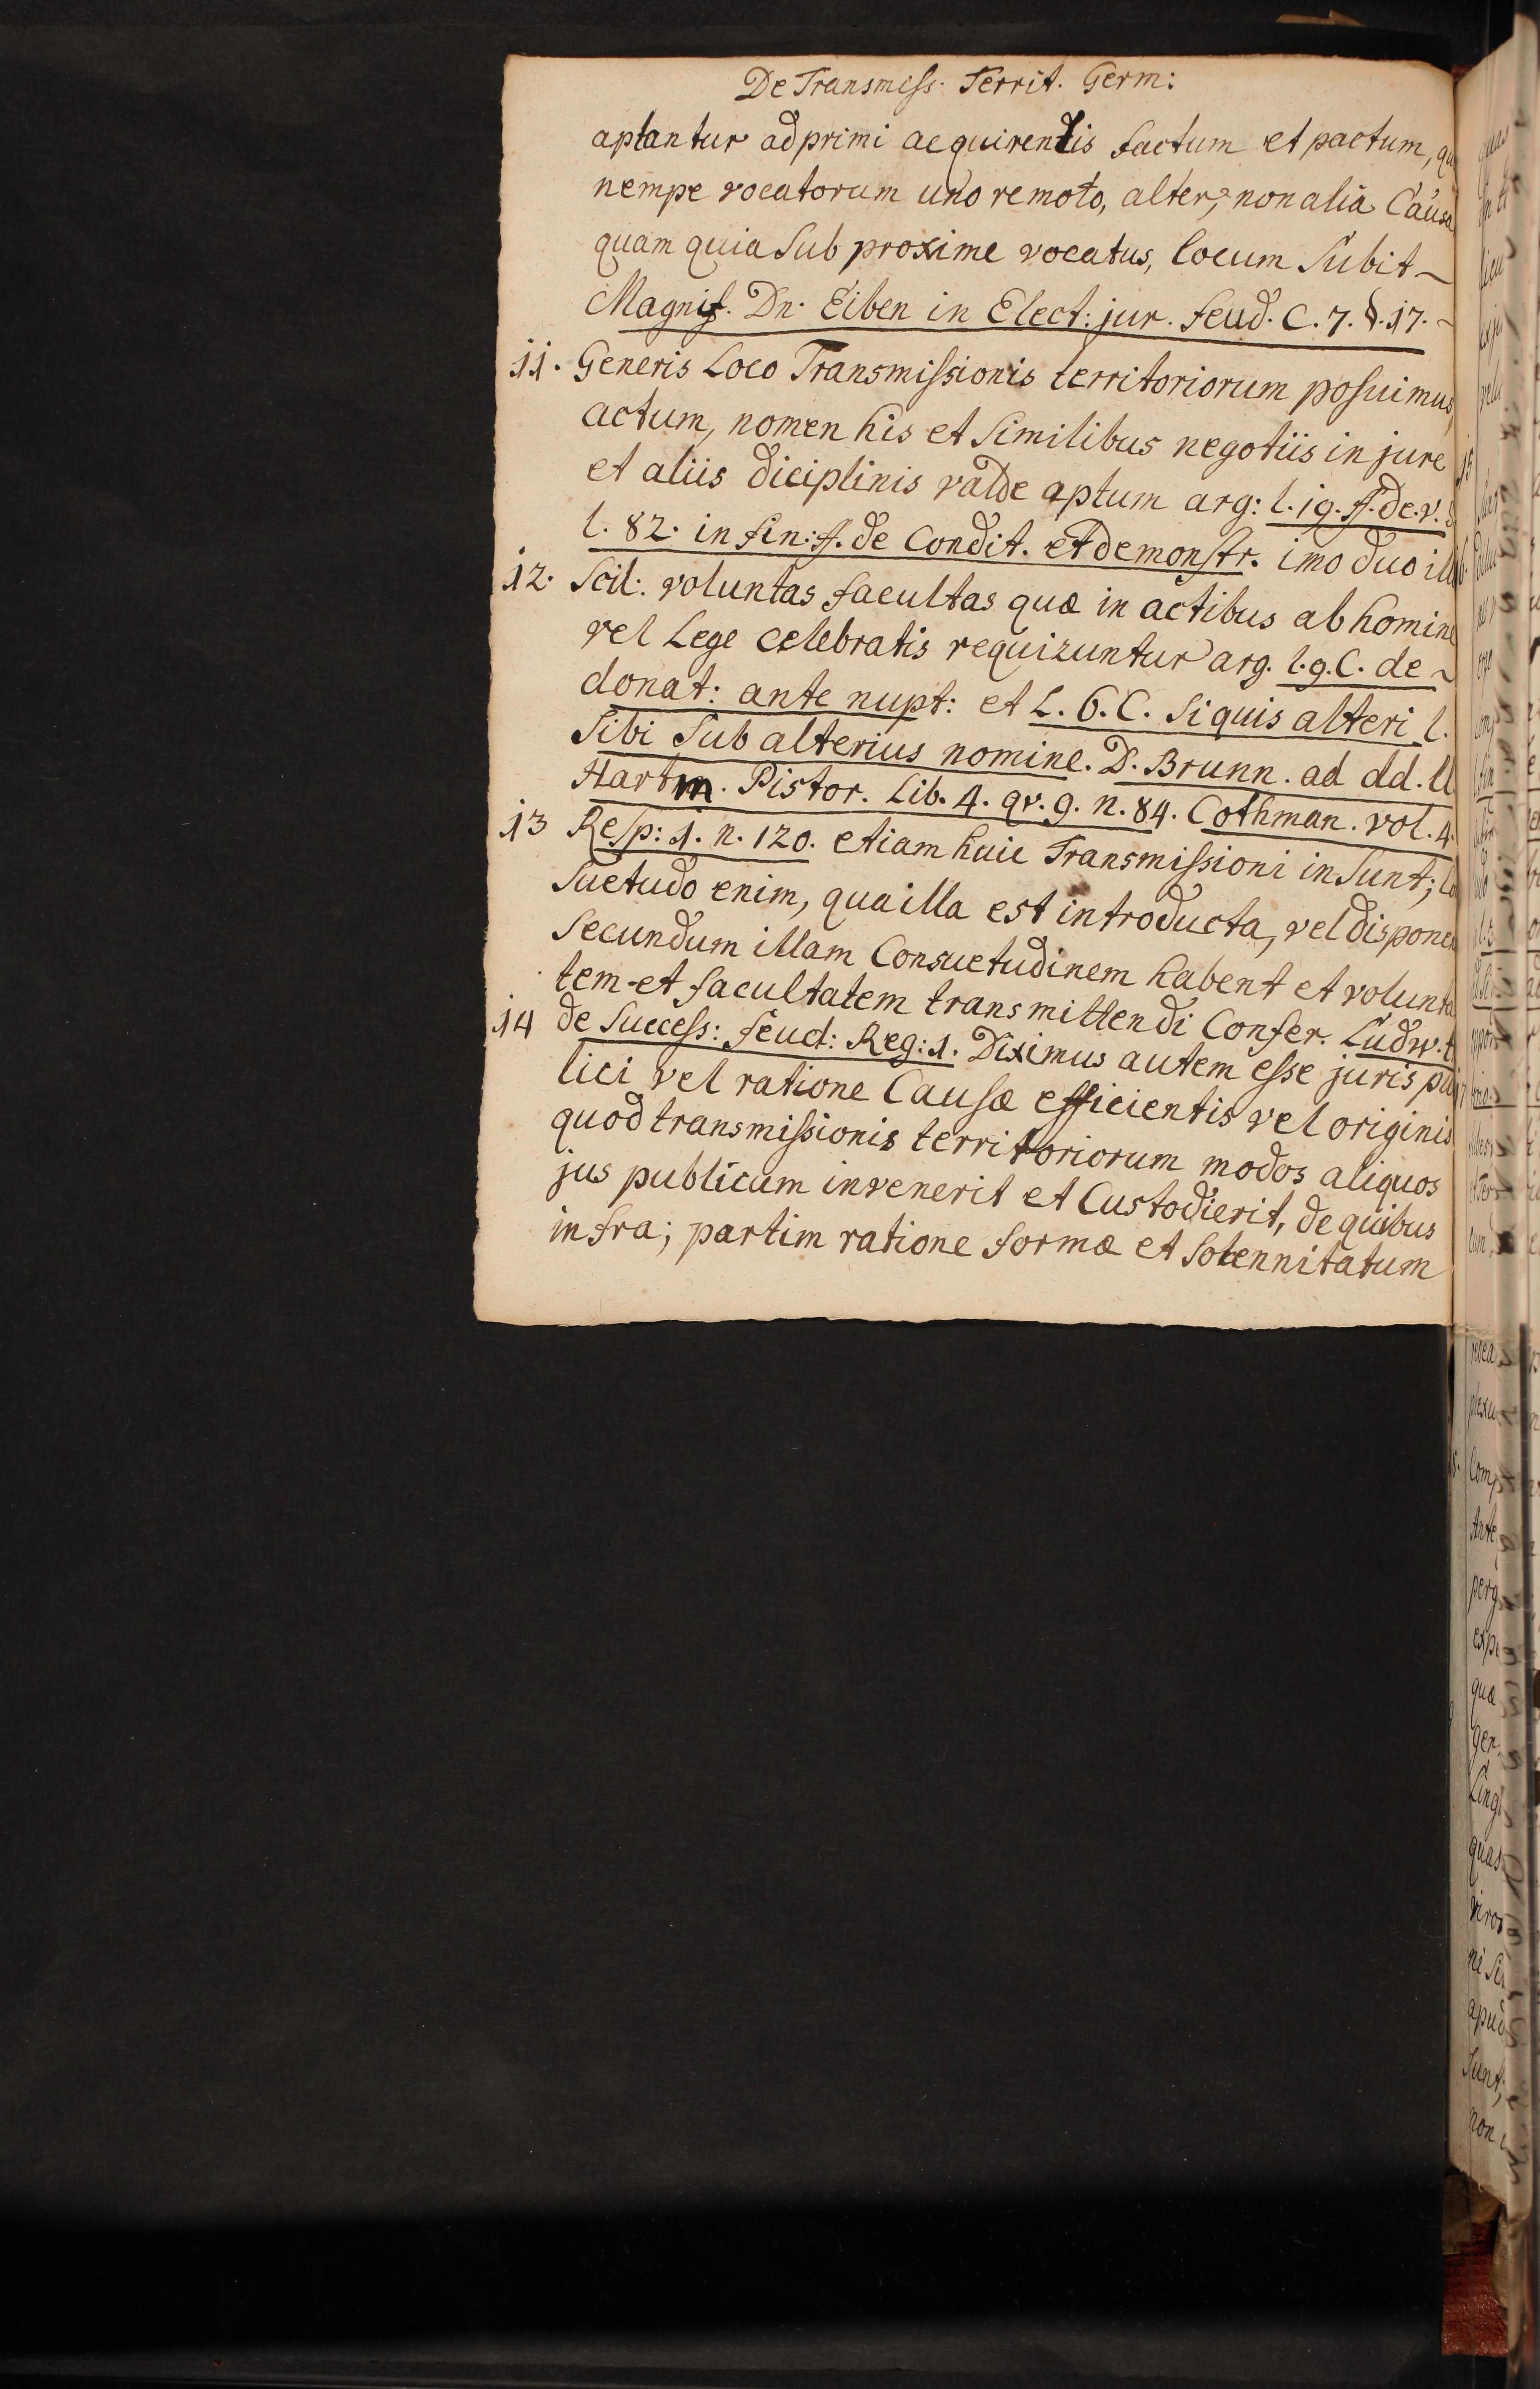 De Transmiss. Territ. Germ:
aptantur ad primi acquirentis factum et pactum,
nempe vocatorum uno remoto, alter, non alia Causa
quam quia sub proxime vocatus, locum subit
Magnif. Dn. Eiben in Elect: jur. feud. C. 7. §. 17.
11. Generis Loco Transmissionis territoriorum posuimus
actum, nomen his et similibus negotiis in jure
et aliis diciplinis valde aptum arg: l. 19. ff. de. v. s
l. 82. in fin: ff. de Condit. et demonstr. imo duo
12. Scil: voluntas facultas quæ in actibus ab homine
vel Lege celebratis requizuntur arg. l. 9. C. de
donat: ante nupt: et L. 6. C. Si quis alteri l.
Sibi Sub alterius nomine. D. Brunn. ad dd. ll
Hartm. Pistor. Lib. 4. qv. 9. n. 84. Cothman. vol. 4.
13 Resp: 1. n. 120. etiam huic Transmissioni insunt;
suetudo enim, qua illa est introducta, vel dispone
secundum illam Consuetudinem habent et volunta
tem et facultatem transmittendi Confer. Ludw.
14 de Success: feud: Reg: 1. Diximus autem esse juris pu
lici vel ratione Causæ efficientis vel originis
quod transmissionis territoriorum modos aliquos
jus publicum invenerit et Custodierit, de quibus
infra; partim ratione formæ et solennitatum